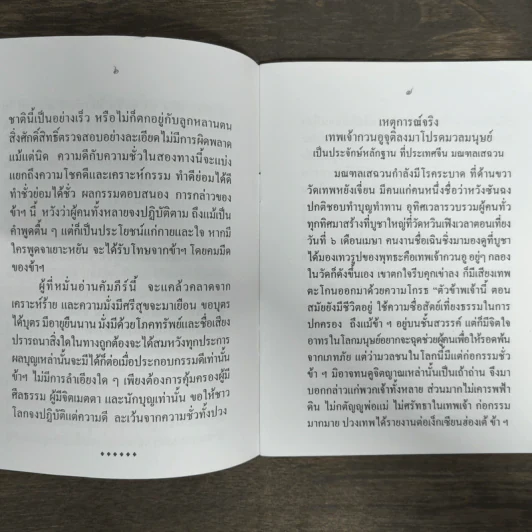 ๖
ชาตินี้เป็นอย่างเร็ว หรือไม่ก็ตกอยู่กับลูกหลานตน
สิ่งศักดิ์สิทธิ์ตรวจสอบอย่างละเอียดไม่มีการผิดพลาด
แม้แต่นิด ความดีกับความชั่วในสองทางนี้จะแบ่ง
แยกถึงความโชคดีและเคราะห์กรรม ทำดีย่อมได้ดี
ทำชั่วย่อมได้ชั่ว ผลกรรมตอบสนอง การกล่าวของ
ข้าฯ นี้ หวังว่าผู้คนทั้งหลายจงปฏิบัติตาม ถึงแม้เป็น
คำพูดตื้น ๆ แต่ก็เป็นประโยชน์แก่กายและใจ หากมี
ใครพูดจาเยาะหยัน จะได้รับโทษจากข้าฯ โดยคมมีด
ของข้าฯ
ผู้ที่หมั่นอ่านคัมภีร์นี้ จะแคล้วคลาดจาก
เคราะห์ร้าย และความมั่งมีศรีสุขจะมาเยือน ขอบุตร
ได้บุตร มีอายุยืนนาน มั่งมีด้วยโภคทรัพย์และชื่อเสียง
ปรารถนาสิ่งใดในทางถูกต้องจะได้สมหวังทุกประการ
ผลบุญเหล่านั้นจะมีได้ก็ต่อเมื่อประกอบกรรมดีเท่านั้น
ข้าฯ ไม่มีการลำเอียงใด ๆ เพียงต้องการคุ้มครองผู้มี
ศีลธรรม ผู้มีจิตเมตตา และนักบุญเท่านั้น ขอให้ชาว
โลกจงปฏิบัติแต่ความดี ละเว้นจากความชั่วทั้งปวง
♦♦♦♦♦♦
๗
เหตุการณ์จริง
เทพเจ้ากวนอูจุติลงมาโปรดมวลมนุษย์
เป็นประจักษ์หลักฐาน ที่ประเทศจีน มณฑลเสฉวน
มณฑลเสฉวนกำลังมีโรคระบาด ที่ด้านขวา
วัดเทพหยังเจื่อน มีคนแก่คนหนึ่งชื่อว่าหวังซันฉง
ปกติชอบทำบุญทำทาน อุทิศเวลารวบรวมผู้คนทั่ว
ทุกทิศมาสร้างที่บูชาใหญ่ที่วัดหวินเฟิงเวลาตอนเที่ยง
วันที่ ๖ เดือนเมษา คนงานชื่อเฉินซิ่งมามองดูที่บูชา
ได้มองเทวรูปของพุทธะคือเทพเจ้ากวนอู อยู่ๆ กลอง
ในวัดก็ดังขึ้นเอง เขาตกใจรีบคุกเข่าลง ก็มีเสียงเทพ
ตะโกนออกมาด้วยความโกรธ "ตัวข้าพเจ้านี้ ตอน
สมัยยังมีชีวิตอยู่ ใช้ความซื่อสัตย์เที่ยงธรรมในการ
ปกครอง ถึงแม้ข้า ฯ อยู่บนชั้นสวรรค์ แต่ก็มีจิตใจ
อาทรในโลกมนุษย์อยากจะฉุดช่วยผู้คนเพื่อให้รอดพ้น
จากเภทภัย แต่ว่ามวลชนในโลกนี้มีแต่ก่อกรรมชั่ว
ข้า ฯ มิอาจทนดูจิตญาณเหล่านั้นเป็นเถ้าถ่าน จึงมา
บอกกล่าวแก่พวกเจ้าทั้งหลาย ส่วนมากไม่เคารพฟ้า
ดิน ไม่กตัญญูพ่อแม่ ไม่ศรัทธาในเทพเจ้า ก่อกรรม
มากมาย ปวงเทพได้รายงานต่อเง็กเซียนฮ่องเต้ ข้า ฯ